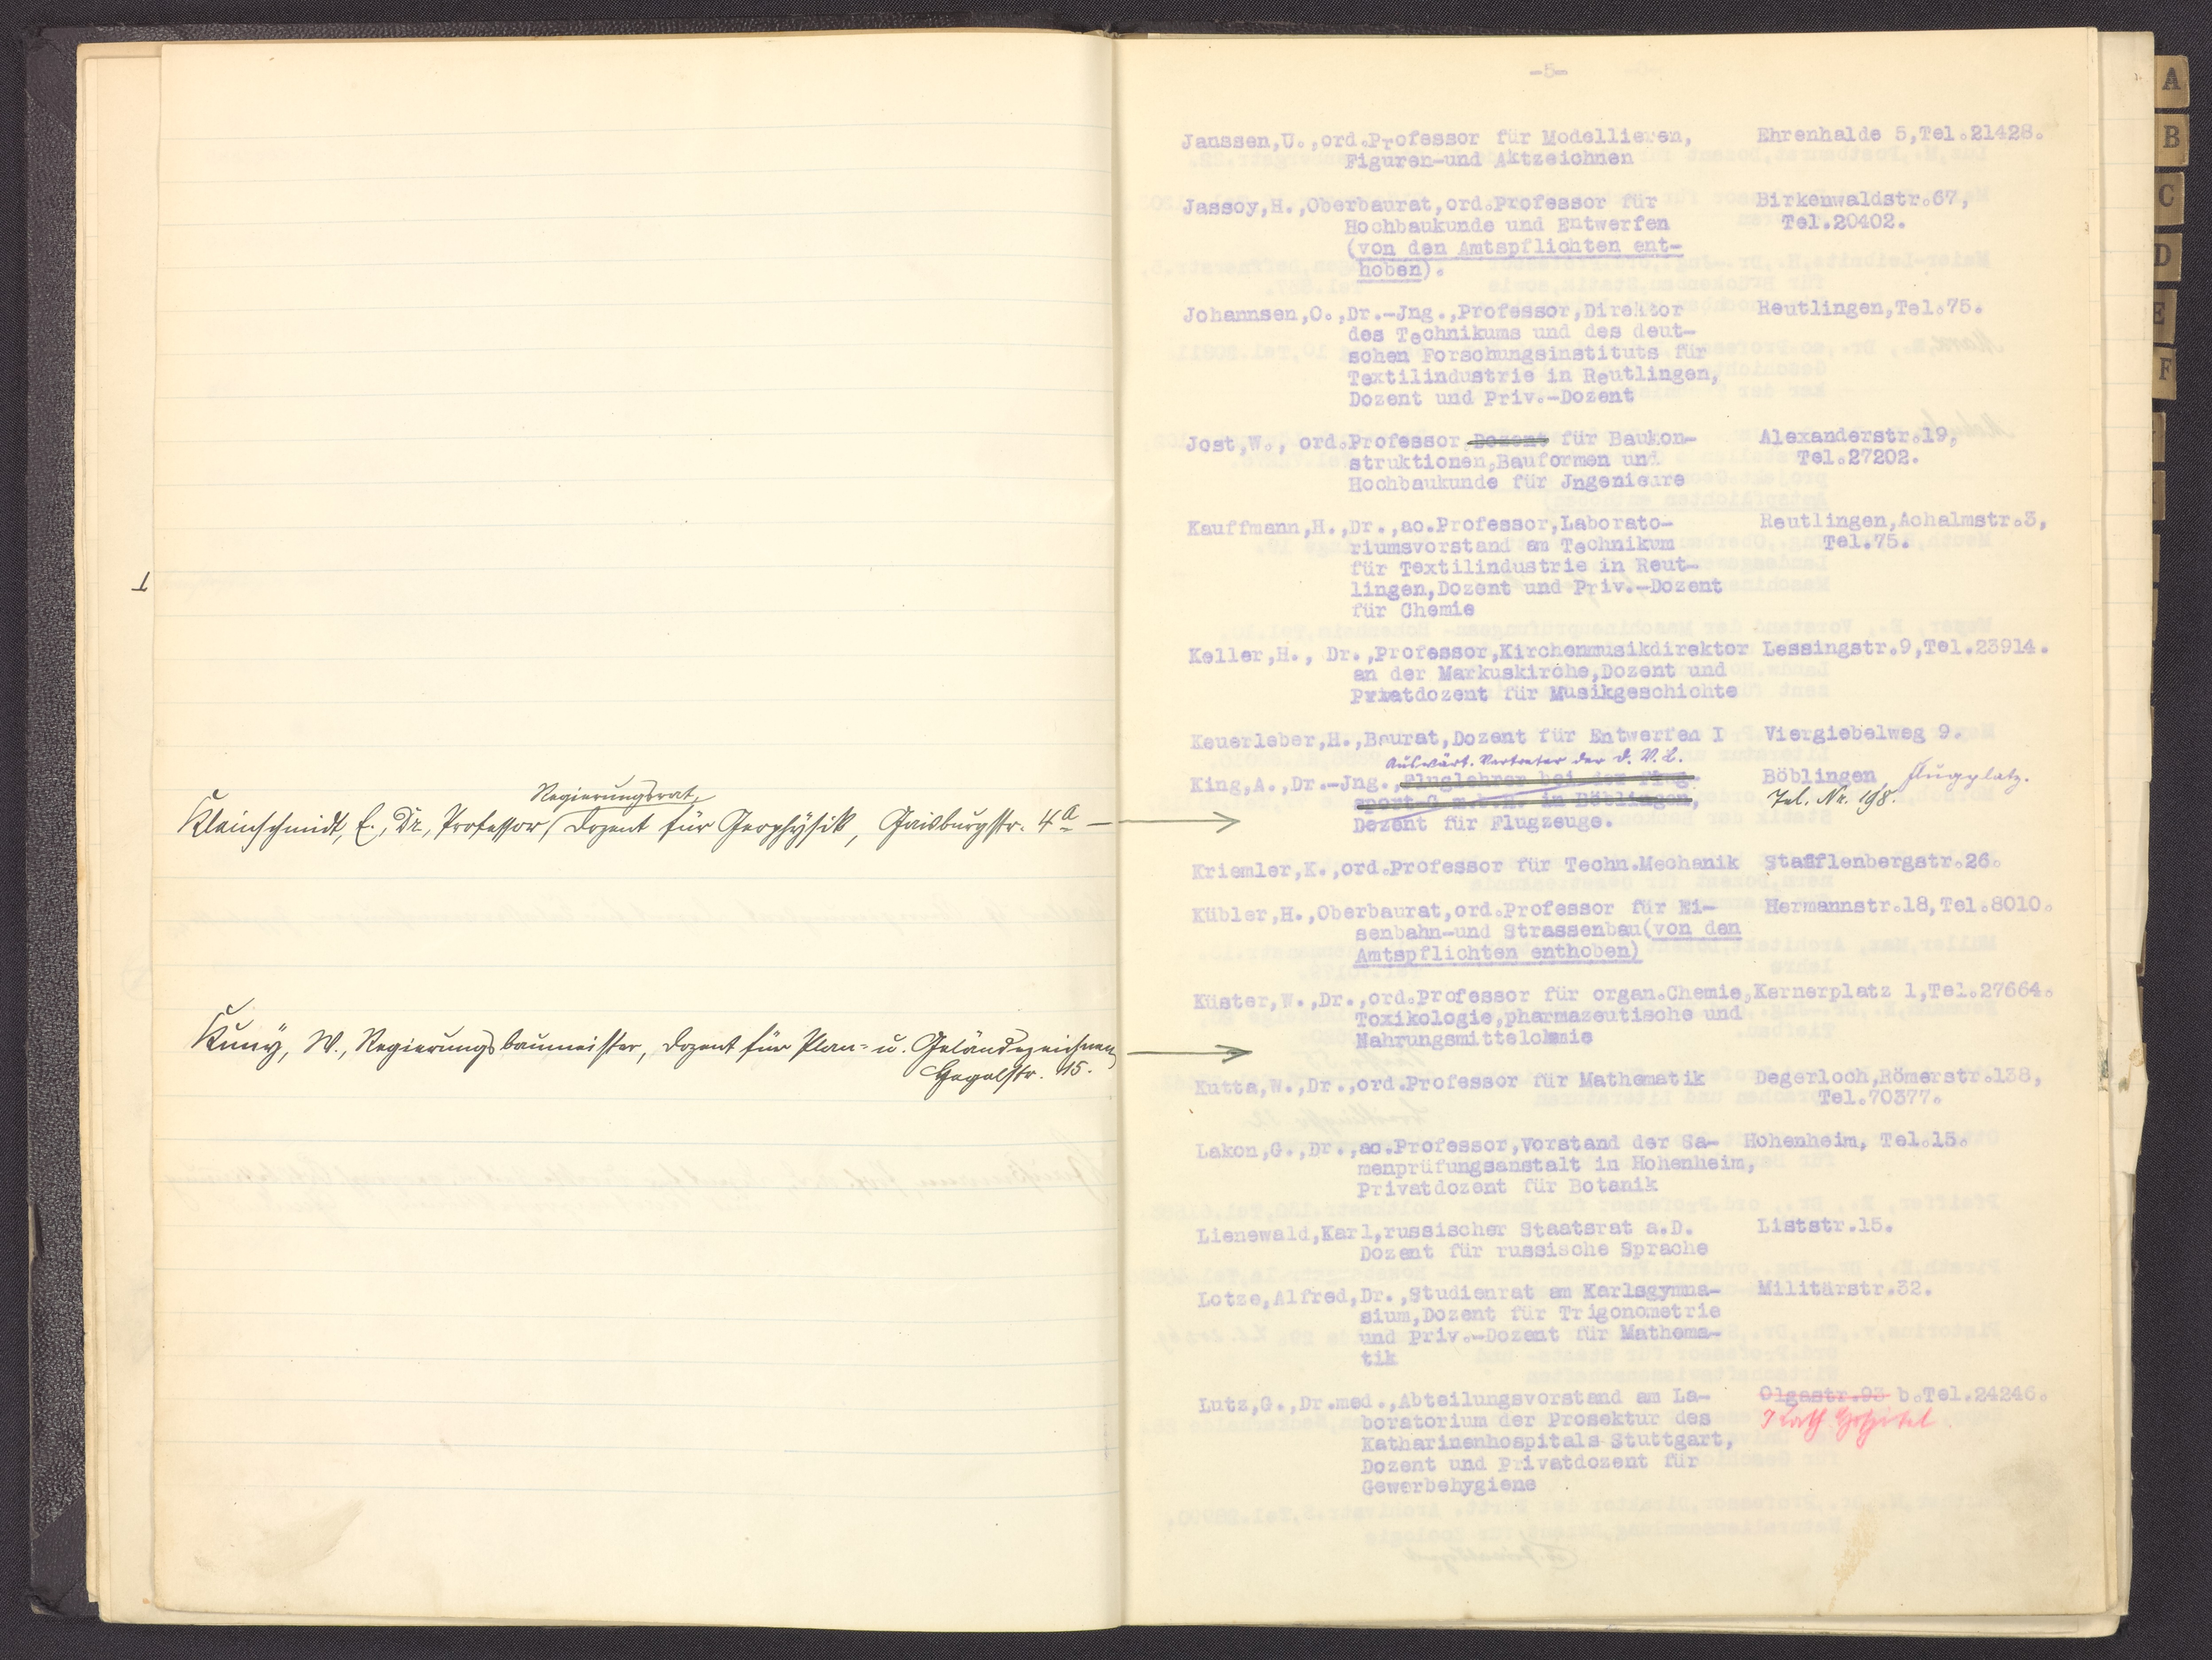 Regierungsrat,
Kleinschmidt, E., Dr., Professor, Dozent für Geophysik, Gaisburgstr. 4a
Kuny, W., Regierungsbaumeister, Dozent für Plan- u. Geländezeichnen
Hegelstr. 15.
-5-
Janssen,U.,ord.Professor für Modellieren, Ehrenhalde 5,Tel.21428.
Figuren-und Aktzeichnen
Jassoy,H.,Oberbaurat,ord.Professor für Birkenwaldstr.67,
Hochbaukunde und Entwerfen Tel.20402.
(von den Amtspflichten ent-
hoben).
Johannsen,O.,Dr.-Jng.,Professor,Direktor Reutlingen,Tel.75.
des Technikums und des deut-
schen Forschungsinstituts für
Textilindustrie in Reutlingen,
Dozent und Priv.-Dozent
Jost,W., ord.Professor Dozent für Baukon- Alexanderstr.19,
struktionen,Bauformen und Tel.27202.
Hochbaukunde für Jngenieure
Kauffmann,H.,Dr.,ao.Professor,Laborato- Reutlingen,Achalmstr.3,
riumsvorstand am Technikum Tel.75.
für Textilindustrie in Reut-
lingen,Dozent und Priv.-Dozent
für Chemie
Keller,H., Dr.,Professor,Kirchenmusikdirektor Lessingstr.9,Tel.23914.
an der Markuskirche,Dozent und
Privatdozent für Musikgeschichte
Keuerleber,H.,Baurat,Dozent für Entwerfen I Viergiebelweg 9.
Auswärt. Vertreter der D. V. L.
King,A.,Dr.-Jng.,Fluglehrer bei der Flug- Böblingen Flugplatz.
sport-G.m.b.H. in Böblingen, Tel. Nr. 198.
Dozent für Flugzeuge.
Kriemler,K.,ord.Professor für Techn.Mechanik Stafflenbergstr.26.
Kübler,H.,Oberbaurat,ord.Professor für Ei- Hermannstr.18,Tel.8010.
senbahn-und Strassenbau(von den
Amtspflichten enthoben)
Küster,W.,Dr.,ord.Professor für organ.Chemie,Kernerplatz 1,Tel.27664.
Toxikologie,pharmazeutische und
Nahrungsmittelchemie
Kutta,W.,Dr.,ord.Professor für Mathematik Degerloch,Römerstr.138,
Tel.70377.
Lakon,G.,Dr.,ao.Professor,Vorstand der Sa- Hohenheim, Tel.15.
menprüfungsanstalt in Hohenheim,
Privatdozent für Botanik
Lienewald,Karl,russischer Staatsrat a.D. Liststr.15.
Dozent für russische Sprache
Lotze,Alfred,Dr.,Studienrat am Karlsgymna- Militärstr.32.
sium,Dozent für Trigonometrie
und Priv.-Dozent für Mathema-
tik
Lutz,G.,Dr.med.,Abteilungsvorstand am La- Olgastr.93 b.Tel.24246.
boratorium der Prosektur des Kath. Hospital
Katharinenhospitals Stuttgart,
Dozent und Privatdozent für
Gewerbehygiene
A
B
C
D
E
F